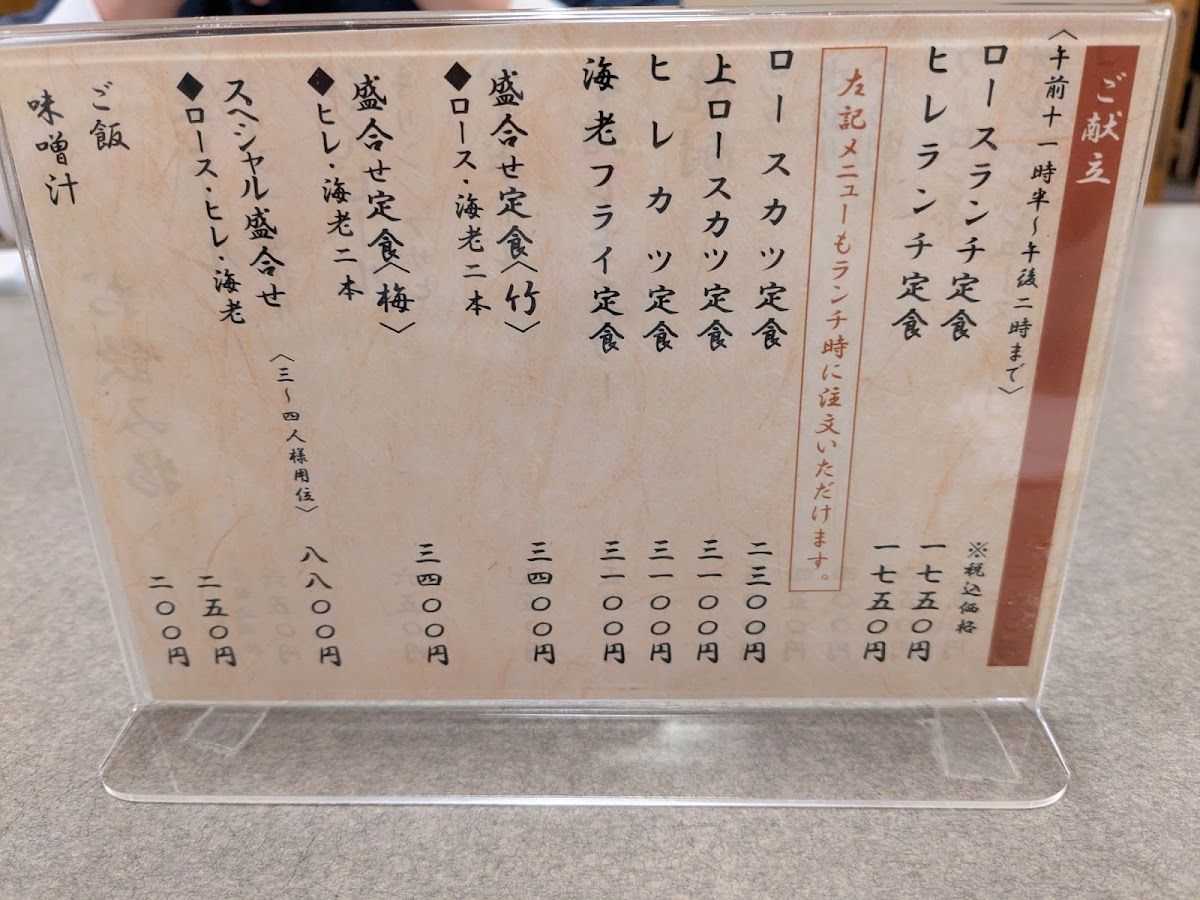 ご献立
〈午前十一時半～午後二時まで〉
※税込価格
ロースランチ定食 一七五〇円
ヒレランチ定食 一七五〇円
左記メニューもランチ時に注文いただけます。
ロースカツ定食 二三〇〇円
上ロースカツ定食 三一〇〇円
ヒレカツ定食 三一〇〇円
海老フライ定食 三一〇〇円
盛合せ定食〈竹〉 三四〇〇円
◆ロース・海老二本
盛合せ定食〈梅〉 三四〇〇円
◆ヒレ・海老二本
スペシャル盛合せ 〈三～四人様用位〉 八八〇〇円
◆ロース・ヒレ・海老
ご飯 二五〇円
味噌汁 二〇〇円